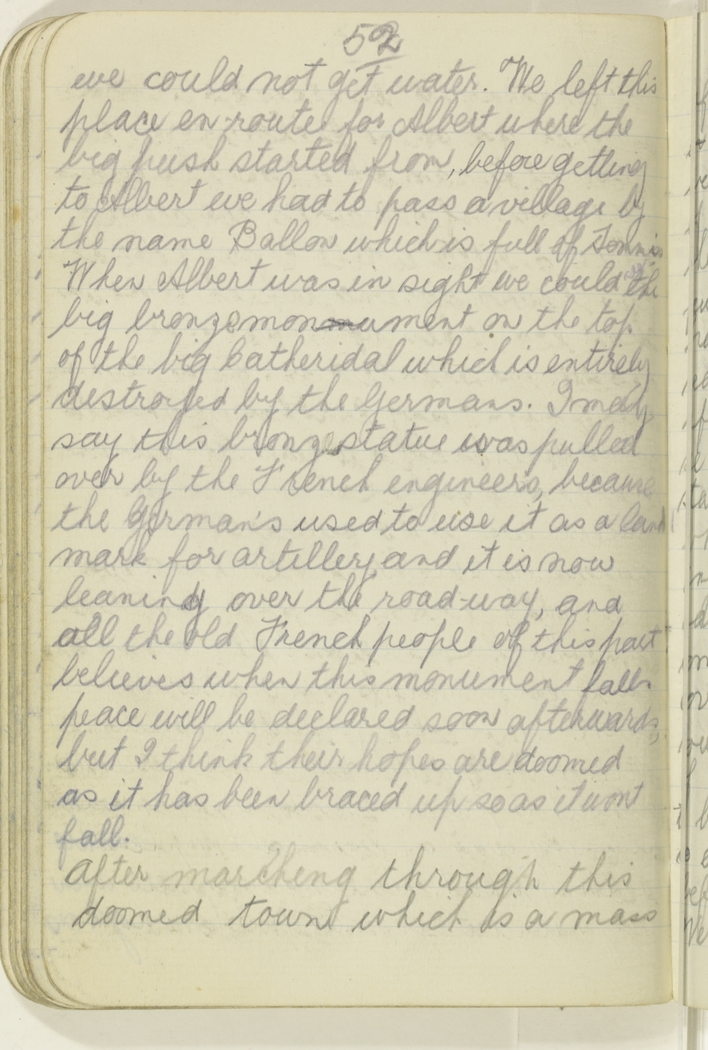 52
we could not get water. We left this
place en-route for Albert where the
big push started from, before getting
to Albert we had to pass a village by
the name Ballon which is full of Tommis
When Albert was in sight we could see the
big bronze monument on the top
of the big Catheridal which is entirely
destroyed by the Germans. I may
say this bronze statue was pulled
over by the French engineers, because
the German's used to use it as a land
mark for artillery, and it is now
leaning over the road-way, and
all the old French people of this part
believes when this monument falls
peace will be declared soon afterwards,
but I think their hopes are doomed
as it has been braced up so as it wont
fall.
After marching through this
doomed town which is a mass